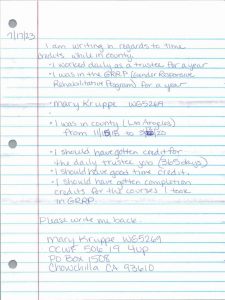 7/17/23
I am writing in regards to time
credits while in county.
• I worked daily as a trustee for a year
• I was in the GRRP (Gender Responsive
Rehabilitative Program) for a year
• Mary Kruppe WG5269
• I was in county (Los Angeles)
from
• I should have gotten credit for
the daily trustee job (365 days)
• I should have good time credit.
• I should have gotten completion
credits for the courses I took
in GRRP.
Please write me back.
Mary Kruppe WG5269
CCWF 506 19 4up
PO Box 1508
Chowchilla CA 93610